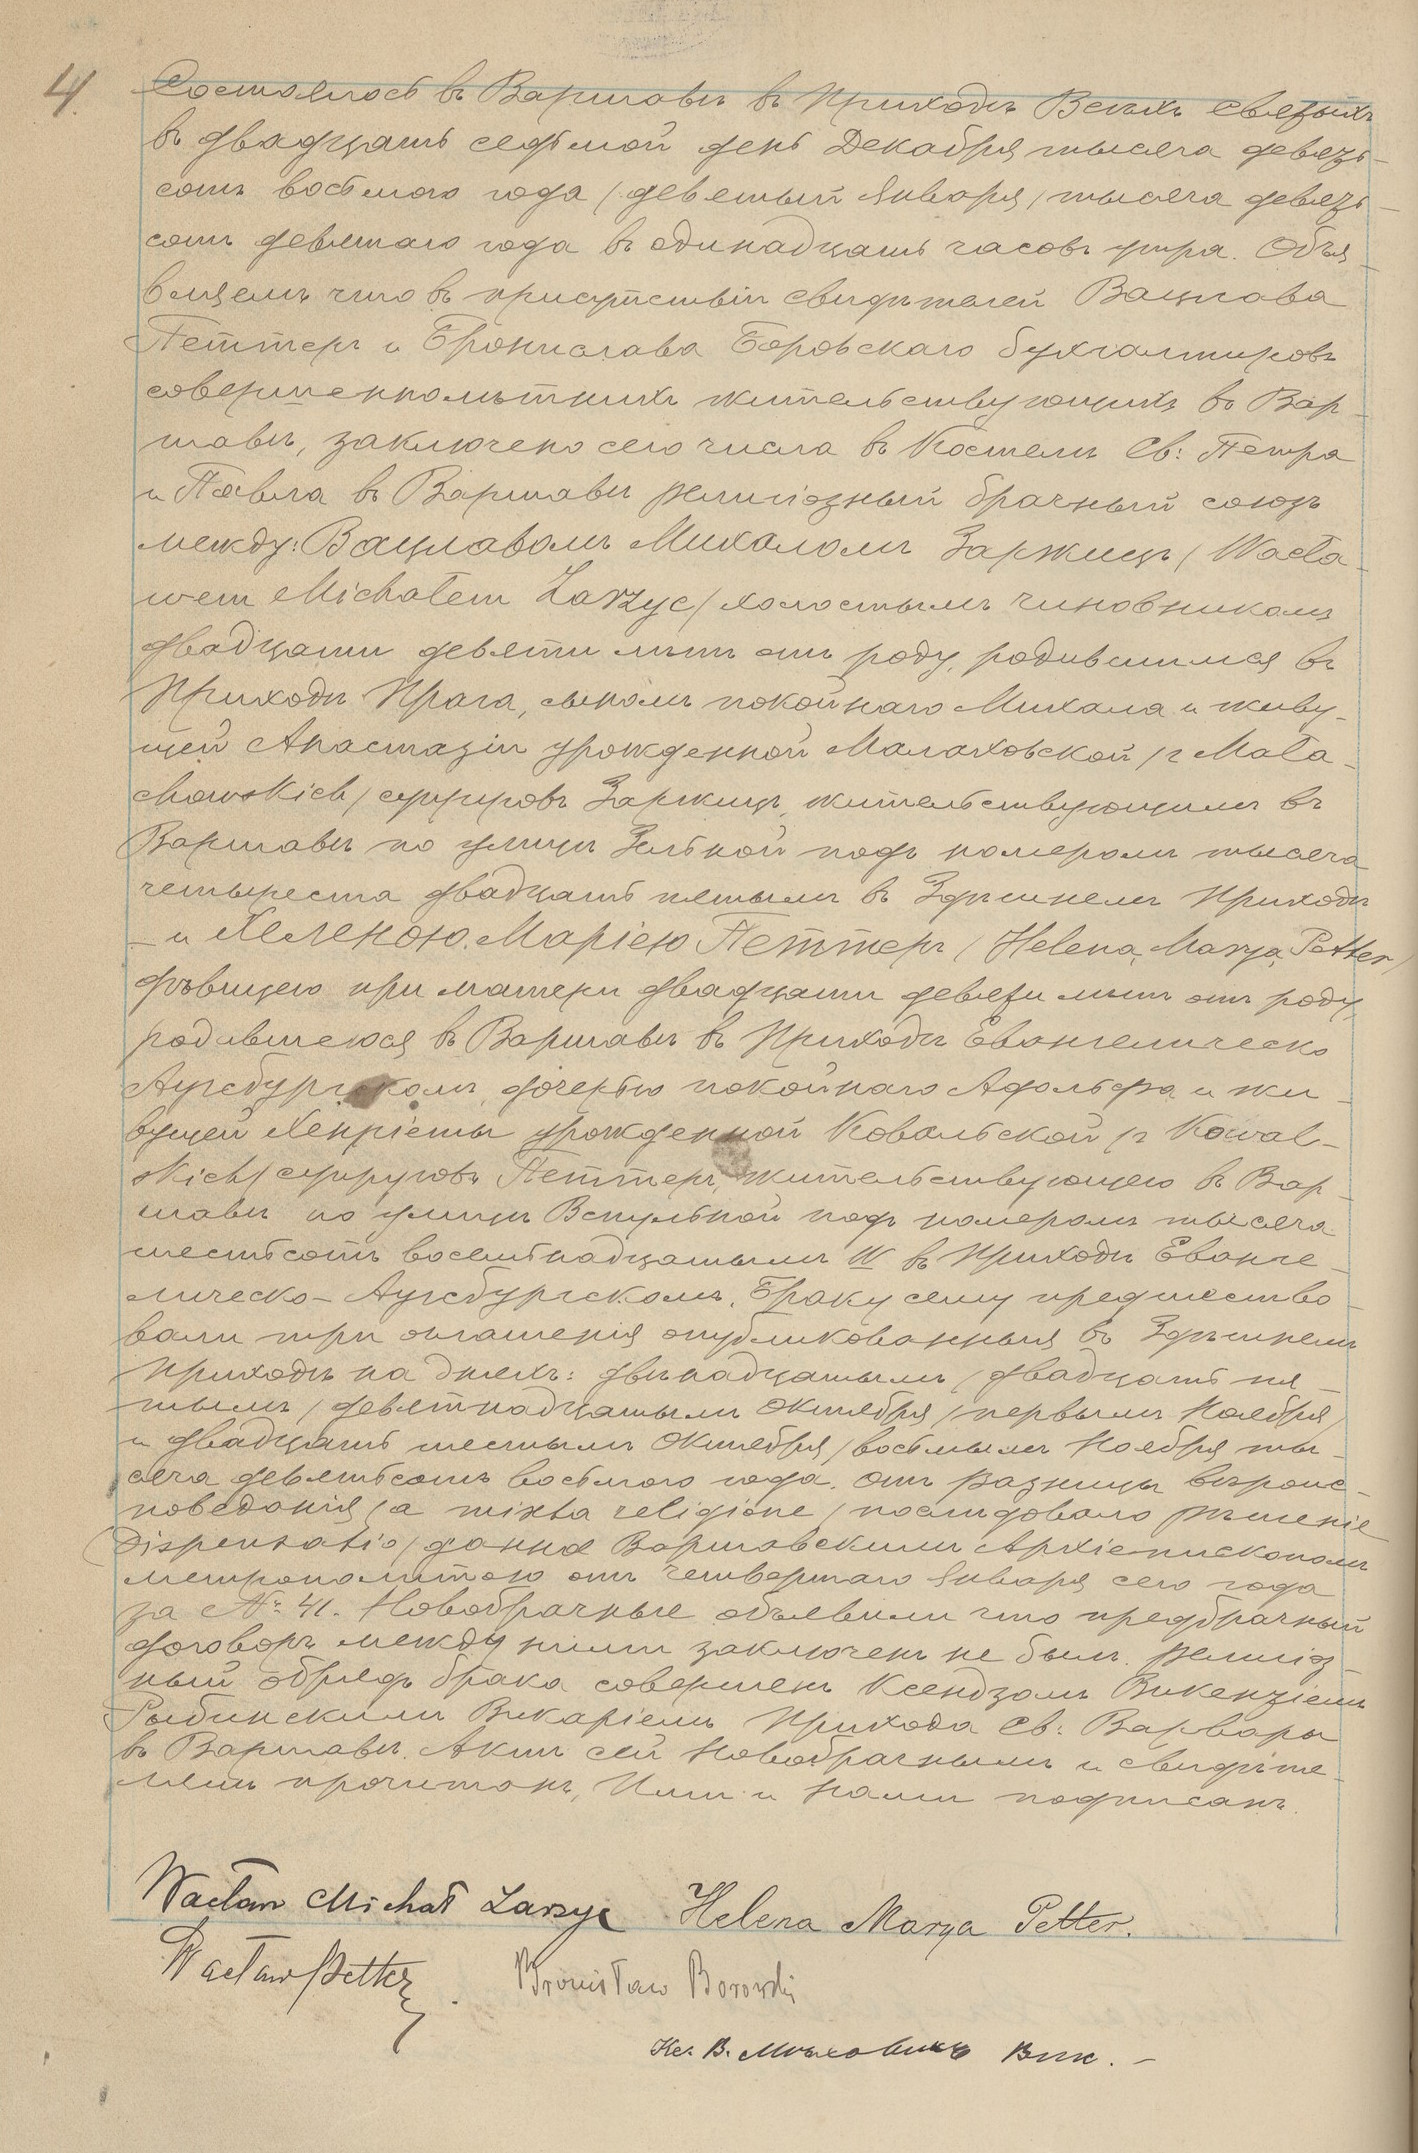 4.
Состоялось въ Варшавѣ въ Приходѣ Всѣхъ Святыхъ
въ двадцать седьмой день Декабря тысяча девять-
сотъ восьмого года /девятый Января/ тысяча девять-
сотъ девятаго года въ одинадцать часовъ утра. Объя-
вляемъ что въ присутствіи свидѣтелей Вацлава
Петтеръ и Бронислава Боровскаго бухгалтеровъ
совершеннолѣтнихъ жительствующихъ въ Вар-
шавѣ, заключено сего числа въ Костелѣ Св: Петра
и Павла въ Варшавѣ религіозный брачный союзъ
между: Вацлавомъ Михаломъ Заржицъ /Wacła-
wem Michałem Zarzyc/ холостымъ чиновникомъ
двадцати девяти лѣтъ отъ роду, родившимся въ
Приходѣ Прага, сыномъ покойнаго Михала и живу-
щей Анастазіи урожденной Малаховской /z Mała-
chowskich/ супруговъ Заржицъ, жительствующимъ въ
Варшавѣ по улицѣ Зельной подъ номеромъ тысяча
четыреста двадцать пятымъ въ Здѣшнемъ Приходѣ
– и Хеленою Маріею Петтеръ /Helena, Marya, Petter/
дѣвицею при матери двадцати девяти лѣтъ отъ роду,
родившеюся въ Варшавѣ въ Приходѣ Евангелическо
Аугсбургскомъ, дочерью покойнаго Адольфа и жи-
вущей Хенріеты урожденной Ковальской /z Kowal-
skich/ супруговъ Петтеръ, жительствующею въ Вар-
шавѣ по улицѣ Вспульной подъ номеромъ тысяча
шестьсотъ восемьнадцатымъ IV въ Приходѣ Еванге-
лическо-Аугсбургскомъ. Браку сему предшество-
вали три оглашенія опубликованныя въ Здѣшнемъ
Приходѣ на дняхъ: двѣнадцатымъ /двадцать пя-
тымъ/ девятнадцатымъ Октября /первымъ Ноября/
и двадцать шестымъ Октября /восьмымъ Ноября ты-
сяча девятьсотъ восьмого года. Отъ разницы вѣроис-
поведанія /a mixta religione/ послѣдовало рѣшеніе
/Dispensatio/ данное Варшавскимъ Архіепископомъ
метрополитою отъ четвертаго Января сего года
за № 41. Новобрачные объявили что предбрачный
договоръ между ними заключенъ не былъ. Религіоз-
ный обрядъ брака совершенъ Ксендзомъ Викензіемъ
Рыбинскимъ Викаріемъ Прихода Св: Варвары
въ Варшавѣ. Актъ сей Новобрачнымъ и свидѣте-
лямъ прочитанъ, Ими и Нами подписанъ.
Wacław Michał Zarzyc Helena Marya Petter.
Wacław Petter Bronisław Borowski
Кс. В. Мѣховичъ Вик. –